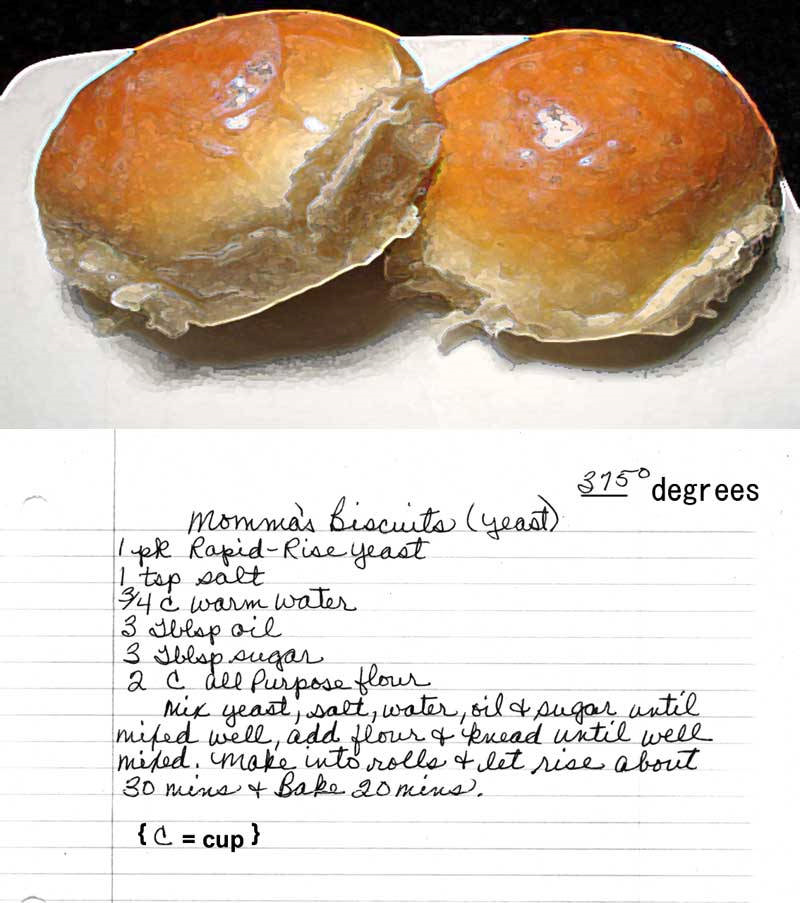 375° degrees
Momma's Biscuits (yeast)
1 pk Rapid-Rise yeast
1 tsp salt
3/4 C warm water
3 Tblsp oil
3 Tblsp sugar
2 C all Purpose flour
Mix yeast, salt, water, oil & sugar until
mixed well, add flour & knead until well
mixed. Make into rolls & let rise about
30 mins & Bake 20 mins.
{ C = cup }